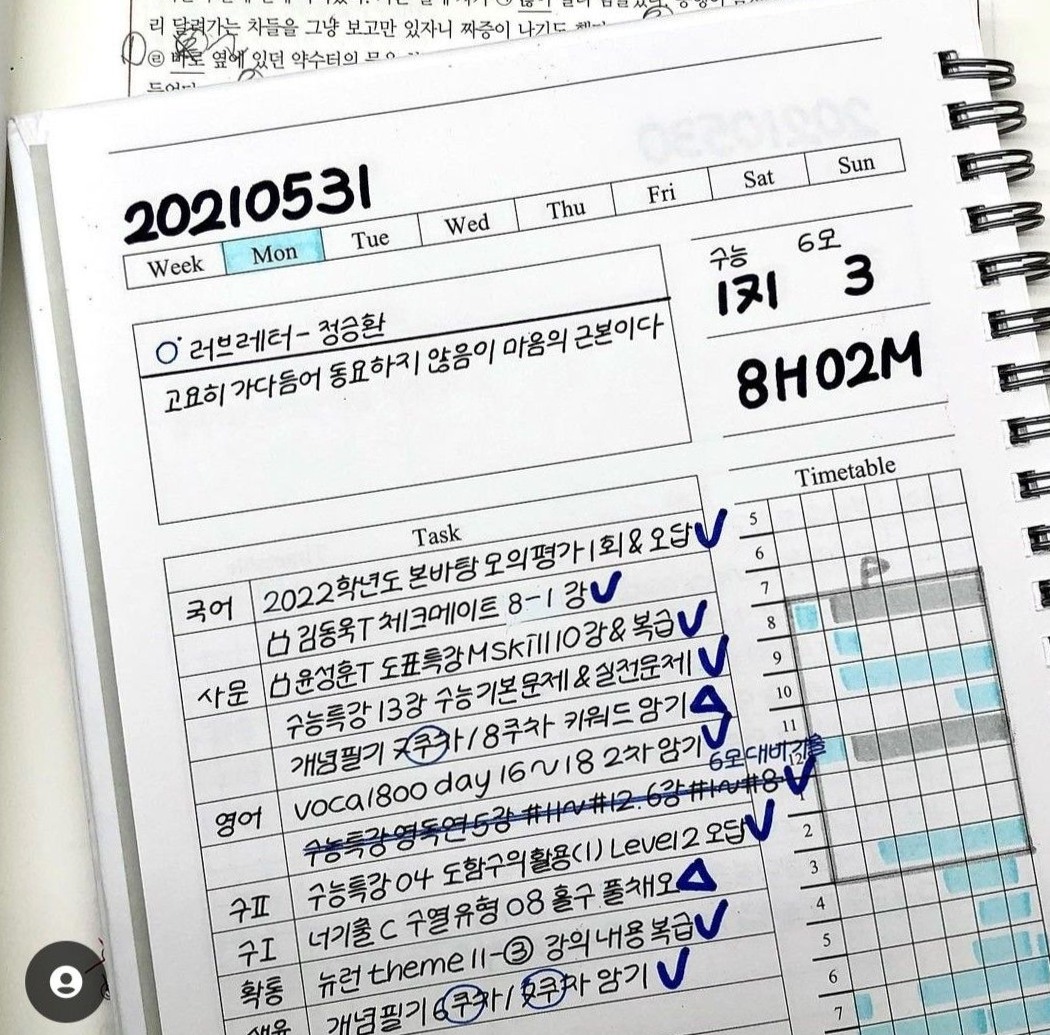 리 달려가는 차들을 그냥 보고만 있자니 짜증이 나기도
㉣ 바로 옆에 있던 약수터의
20210530
20210531
Week Mon Tue Wed Thu Fri Sat Sun
수능 6모
1지 3
러브레터 - 정승환
고요히 가다듬어 동요하지 않음이 마음의 근본이다
8H02M
Task
Timetable
국어 2022학년도 본바탕 모의평가 1회 & 오답
김동욱T 체크메이트 8-1강
사문 윤성훈T 도표특강 MSkill 10강 & 복급
수능특강 13강 수능기본문제 & 실전문제
개념필기 7주차 / 8주차 키워드 암기
영어 voca1800 day 16~18 2차 암기
6모 대비
수능특강영독연 5강 #11~#12. 6강 #1~#8
수Ⅱ 수능특강 04 도함수의 활용(1) Level 2 오답
수Ⅰ 너기출 C 수열 유형 08 홀수 풀채오
확통 뉴런 theme 11-③ 강의 내용 복급
생윤 개념필기 6주차 / 주차 암기
5
6
7
8
9
10
11
12
1
2
3
4
5
6
7